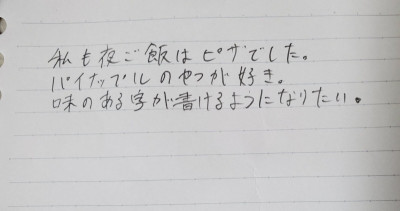 私も夜ご飯はピザでした。
パイナップルのやつが好き。
味のある字が書けるようになりたい。